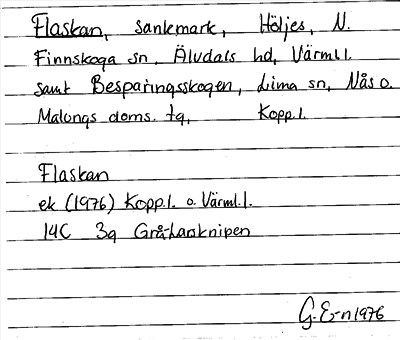 Flaskan, sankmark, Höljes, N.
Finnskoga sn, Älvdals hd, Värml.l.
samt Besparingsskogen, Lima sn, Nås o.
Malungs doms. tg, Kopp.l.
Flaskan
ek (1976) Kopp.l. o. Värml.l.
14C 3g Gråhanknipen
G. E-n 1976